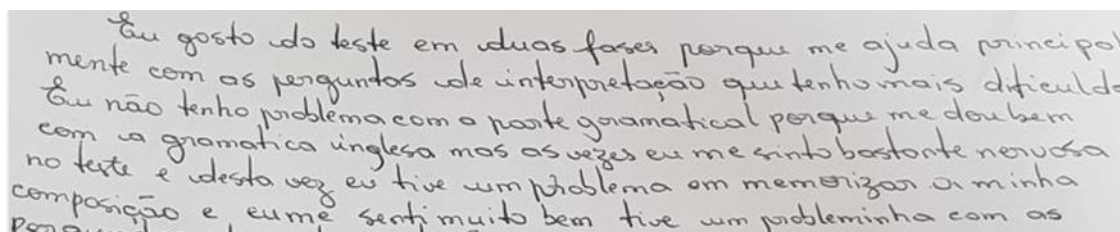 Eu gosto do teste em duas fases porque me ajuda principal
mente com as perguntas de interpretação que tenho mais dificulda
Eu não tenho problema com a parte gramatical porque me dou bem
com a gramatica inglesa mas as vezes eu me sinto bastante nervosa
no teste e desta vez eu tive um problema em memorizar a minha
composição e eu me senti muito bem tive um probleminha com as